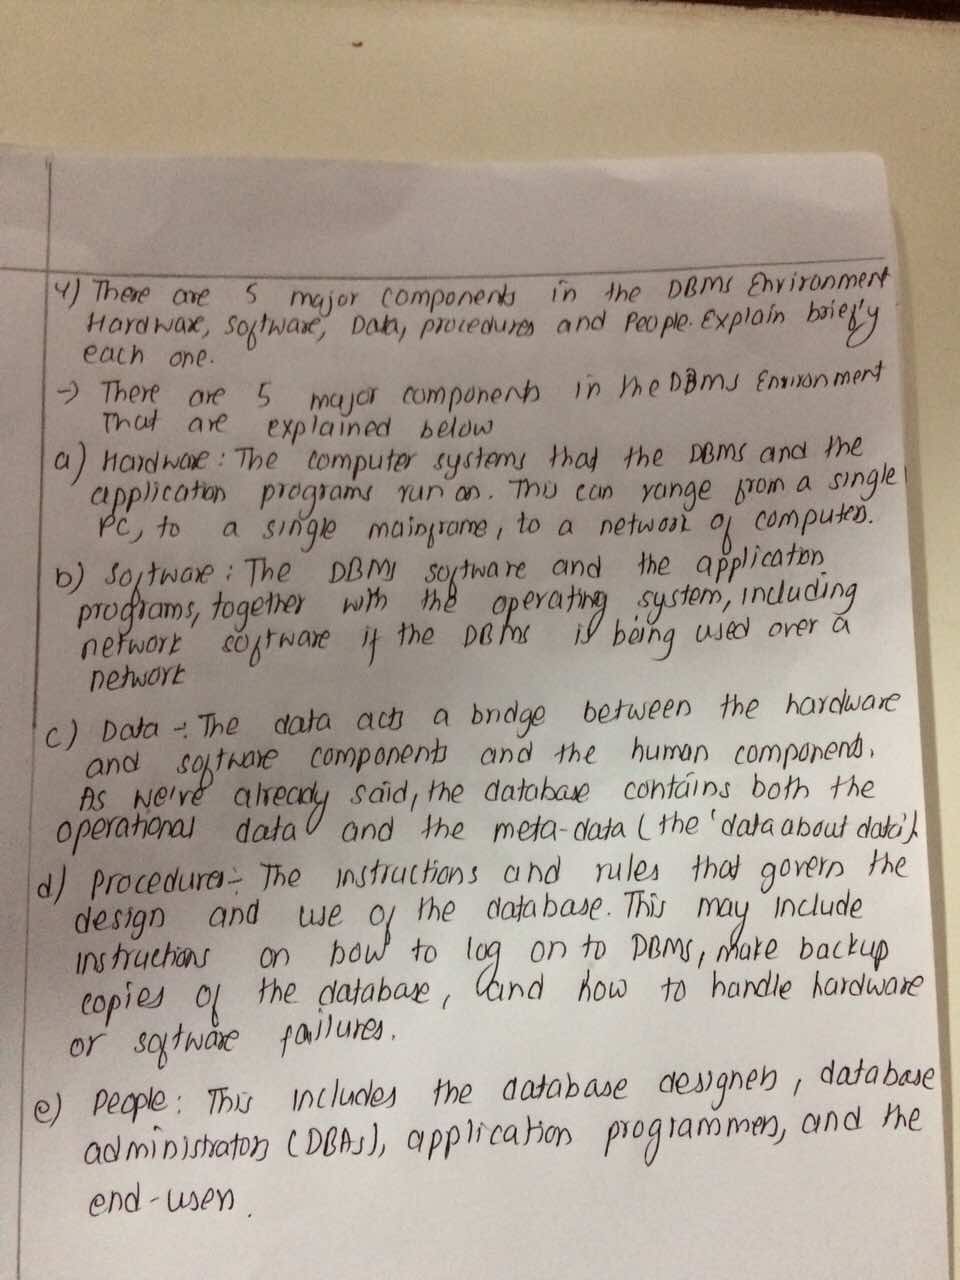 4) There are 5 major components in the DBMS Environment
Hardware, Software, Data, procedures and People. Explain briefly
each one.
→ There are 5 major components in the DBMS Environment
That are explained below
a) Hardware : The computer systems that the DBMS and the
application programs run on. This can range from a single
PC, to a single mainframe, to a network of computers.
b) Software : The DBMS software and the application
programs, together with the operating system, including
network software if the DBMS is being used over a
network
c) Data :- The data acts a bridge between the hardware
and software components and the human components.
As we've already said, the database contains both the
operational data and the meta-data (the 'data about data').
d) Procedures :- The instructions and rules that govern the
design and use of the database. This may include
instructions on how to log on to DBMS, make backup
copies of the database, and how to handle hardware
or software failures.
e) People : This includes the database designers, database
administrators (DBAs), application programmers, and the
end-users.